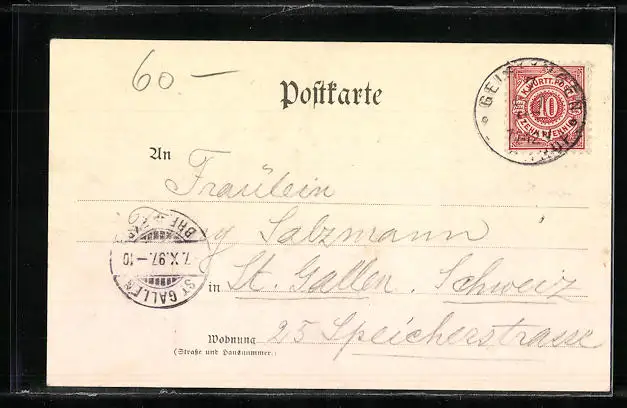 60 —
Postkarte
K. WÜRTT. POST
10
ZEHN PFENNIG
An
Fräulein
Salzmann
in St. Gallen. Schweiz
Wohnung 25 Speicherstrasse
(Straße und Hausnummer.)
7.X.97.—10
ST GALLEN